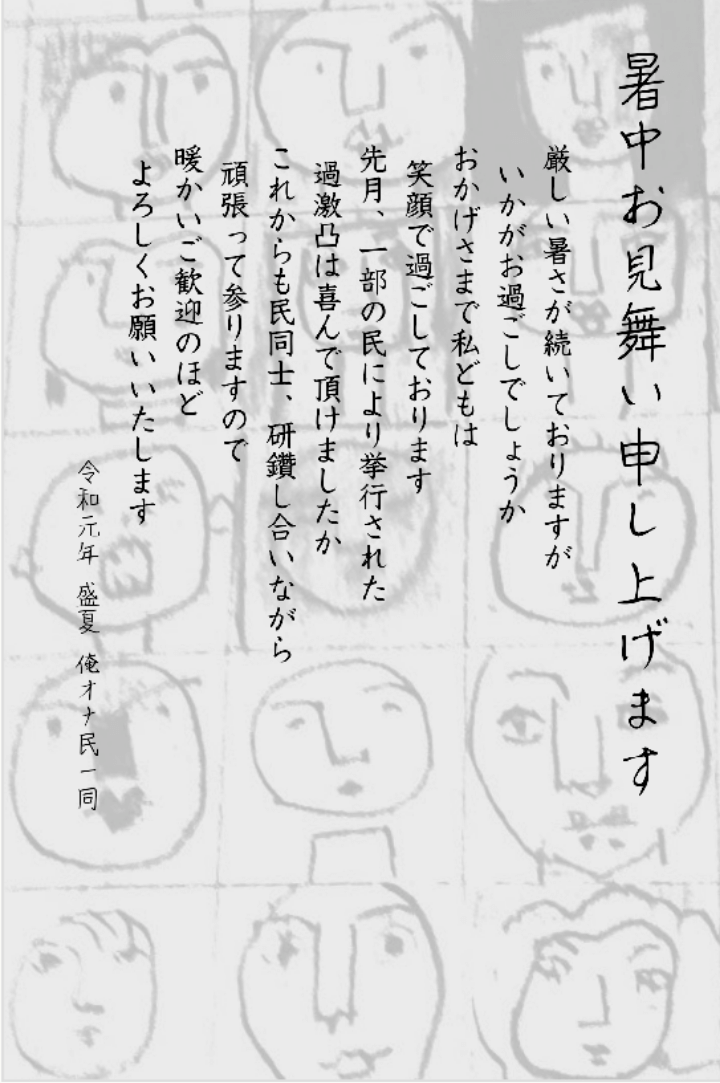 暑中お見舞い申し上げます
厳しい暑さが続いておりますが
いかがお過ごしでしょうか
おかげさまで私どもは
笑顔で過ごしております
先月、一部の民により挙行された
過激凸は喜んで頂けましたか
これからも民同士、研鑽し合いながら
頑張って参りますので
暖かいご歓迎のほど
よろしくお願いいたします
令和元年 盛夏 俺オナ民一同